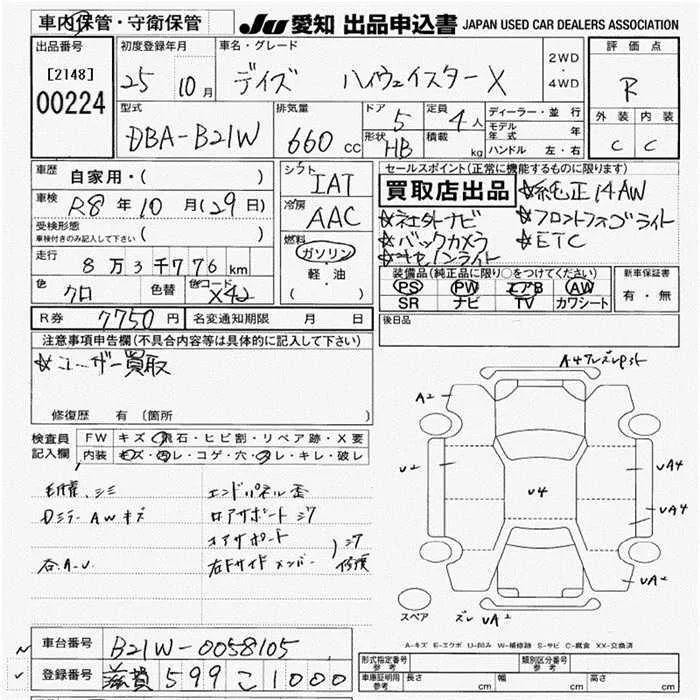 車内保管・守衛保管
JU 愛知 出品申込書 JAPAN USED CAR DEALERS ASSOCIATION
出品番号
[2148]
00224
初度登録年月
25 10月
車名・グレード
デイズ ハイウェイスターX
2WD
・
4WD
評価点
R
外装 内装
C C
型式
DBA-B21W
排気量
660cc
ドア
5
形状
HB
定員
4人
積載
kg
ディーラー・並行
モデル年式 年
ハンドル 左・右
車歴
自家用・( )
車検
R8年10月(29日)
受検形態
車検付きのみ記入して下さい ( )
走行
8万3千776km
色
クロ
色替
色コード
X42
シフト
IAT
冷房
AAC
燃料
ガソリン
・
軽・油
( )
セールスポイント(正常に機能するものに限ります)
買取店出品
☆純正14AW
☆社外ナビ ☆フロントフォグライト
☆バックカメラ ☆ETC
☆キセノンライト
装備品(純正品に限り○をつけてください)
PS PW エアB AW
SR ナビ TV カワシート
新車保証書
有・無
R券 7750円 名変通知期限 月 日
後日品
注意事項申告欄(不具合内容等は具体的に記入して下さい)
☆ユーザー買取
修復歴 有(箇所 )
検査員記入欄
FW キズ・飛石・ヒビ割・リペア跡・X要
内装 キズ・汚レ・コゲ・穴・スレ・キレ・破レ
エンドパネル歪
Dミラー AWキズ
コアサポート
右Fサイドメンバー
修復
A2
U2
U4
UA4
UA4
UA2
UA2
スペア
A-キズ E-エクボ U-凹み W-補修跡 S-サビ C-腐食 XX-交換済
車台番号 B21W-0058105
登録番号 滋賀 599 こ 1000
形式指定番号 参考
類別区分番号 参考
車庫証明用 参考 長さ cm 幅 cm 高さ cm